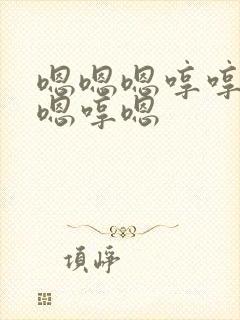 嗯嗯嗯哼哼
嗯哼嗯
項崢